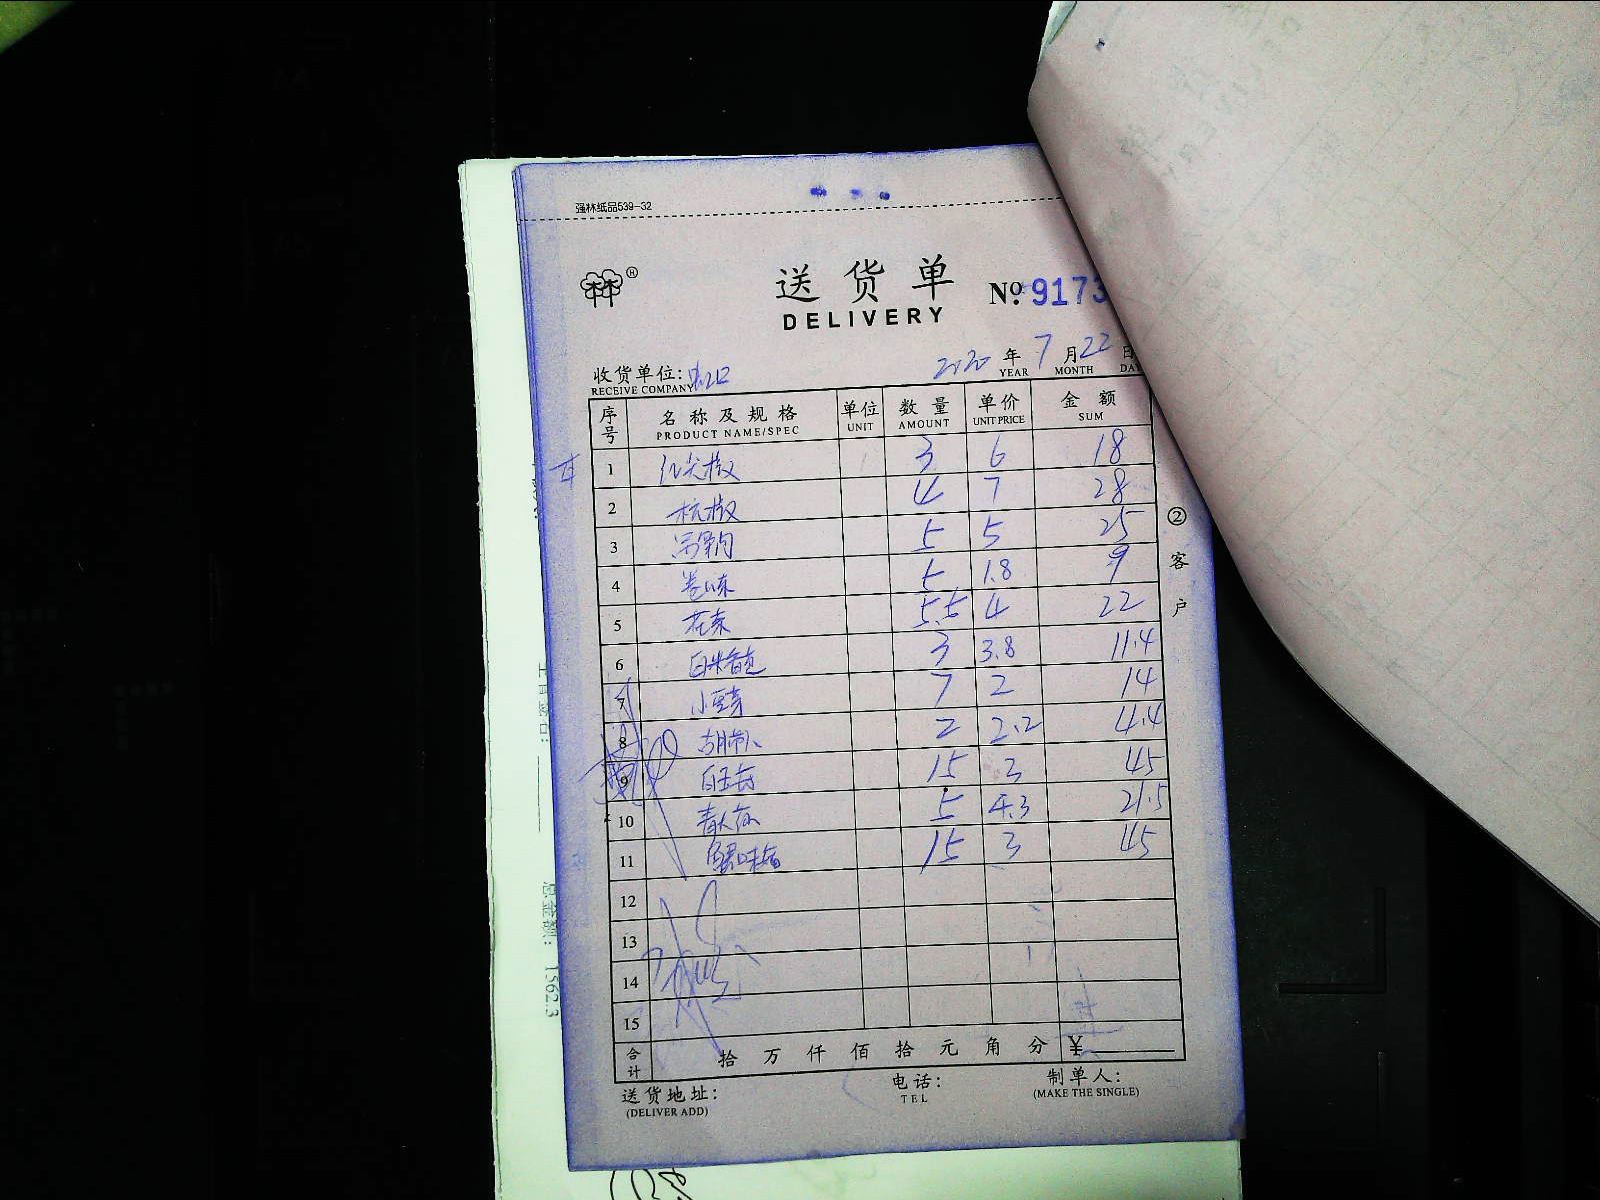 强林纸品539-32
林®
送货单
№ 9173
DELIVERY
2020 年 7 月 22 日
YEAR MONTH DA
收货单位:
RECEIVE COMPANY
序号 名称及规格 单位 数量 单价 金额
PRODUCT NAME/SPEC UNIT AMOUNT UNIT PRICE SUM
1 红尖椒 3 6 18
2 杭椒 4 7 28
3 5 5 25
4 5 1.8 9
5 花菜 5.5 4 22
6 3 3.8 11.4
7 小豆芽 7 2 14
8 2 2.2 4.4
9 15 3 45
10 5 4.3 21.5
11 蟹味菇 15 3 45
12
13
14
15
合计 拾 万 仟 佰 拾 元 角 分 ¥
送货地址: 电话: 制单人:
(DELIVER ADD) TEL (MAKE THE SINGLE)
② 客户
总金额: 1562.3